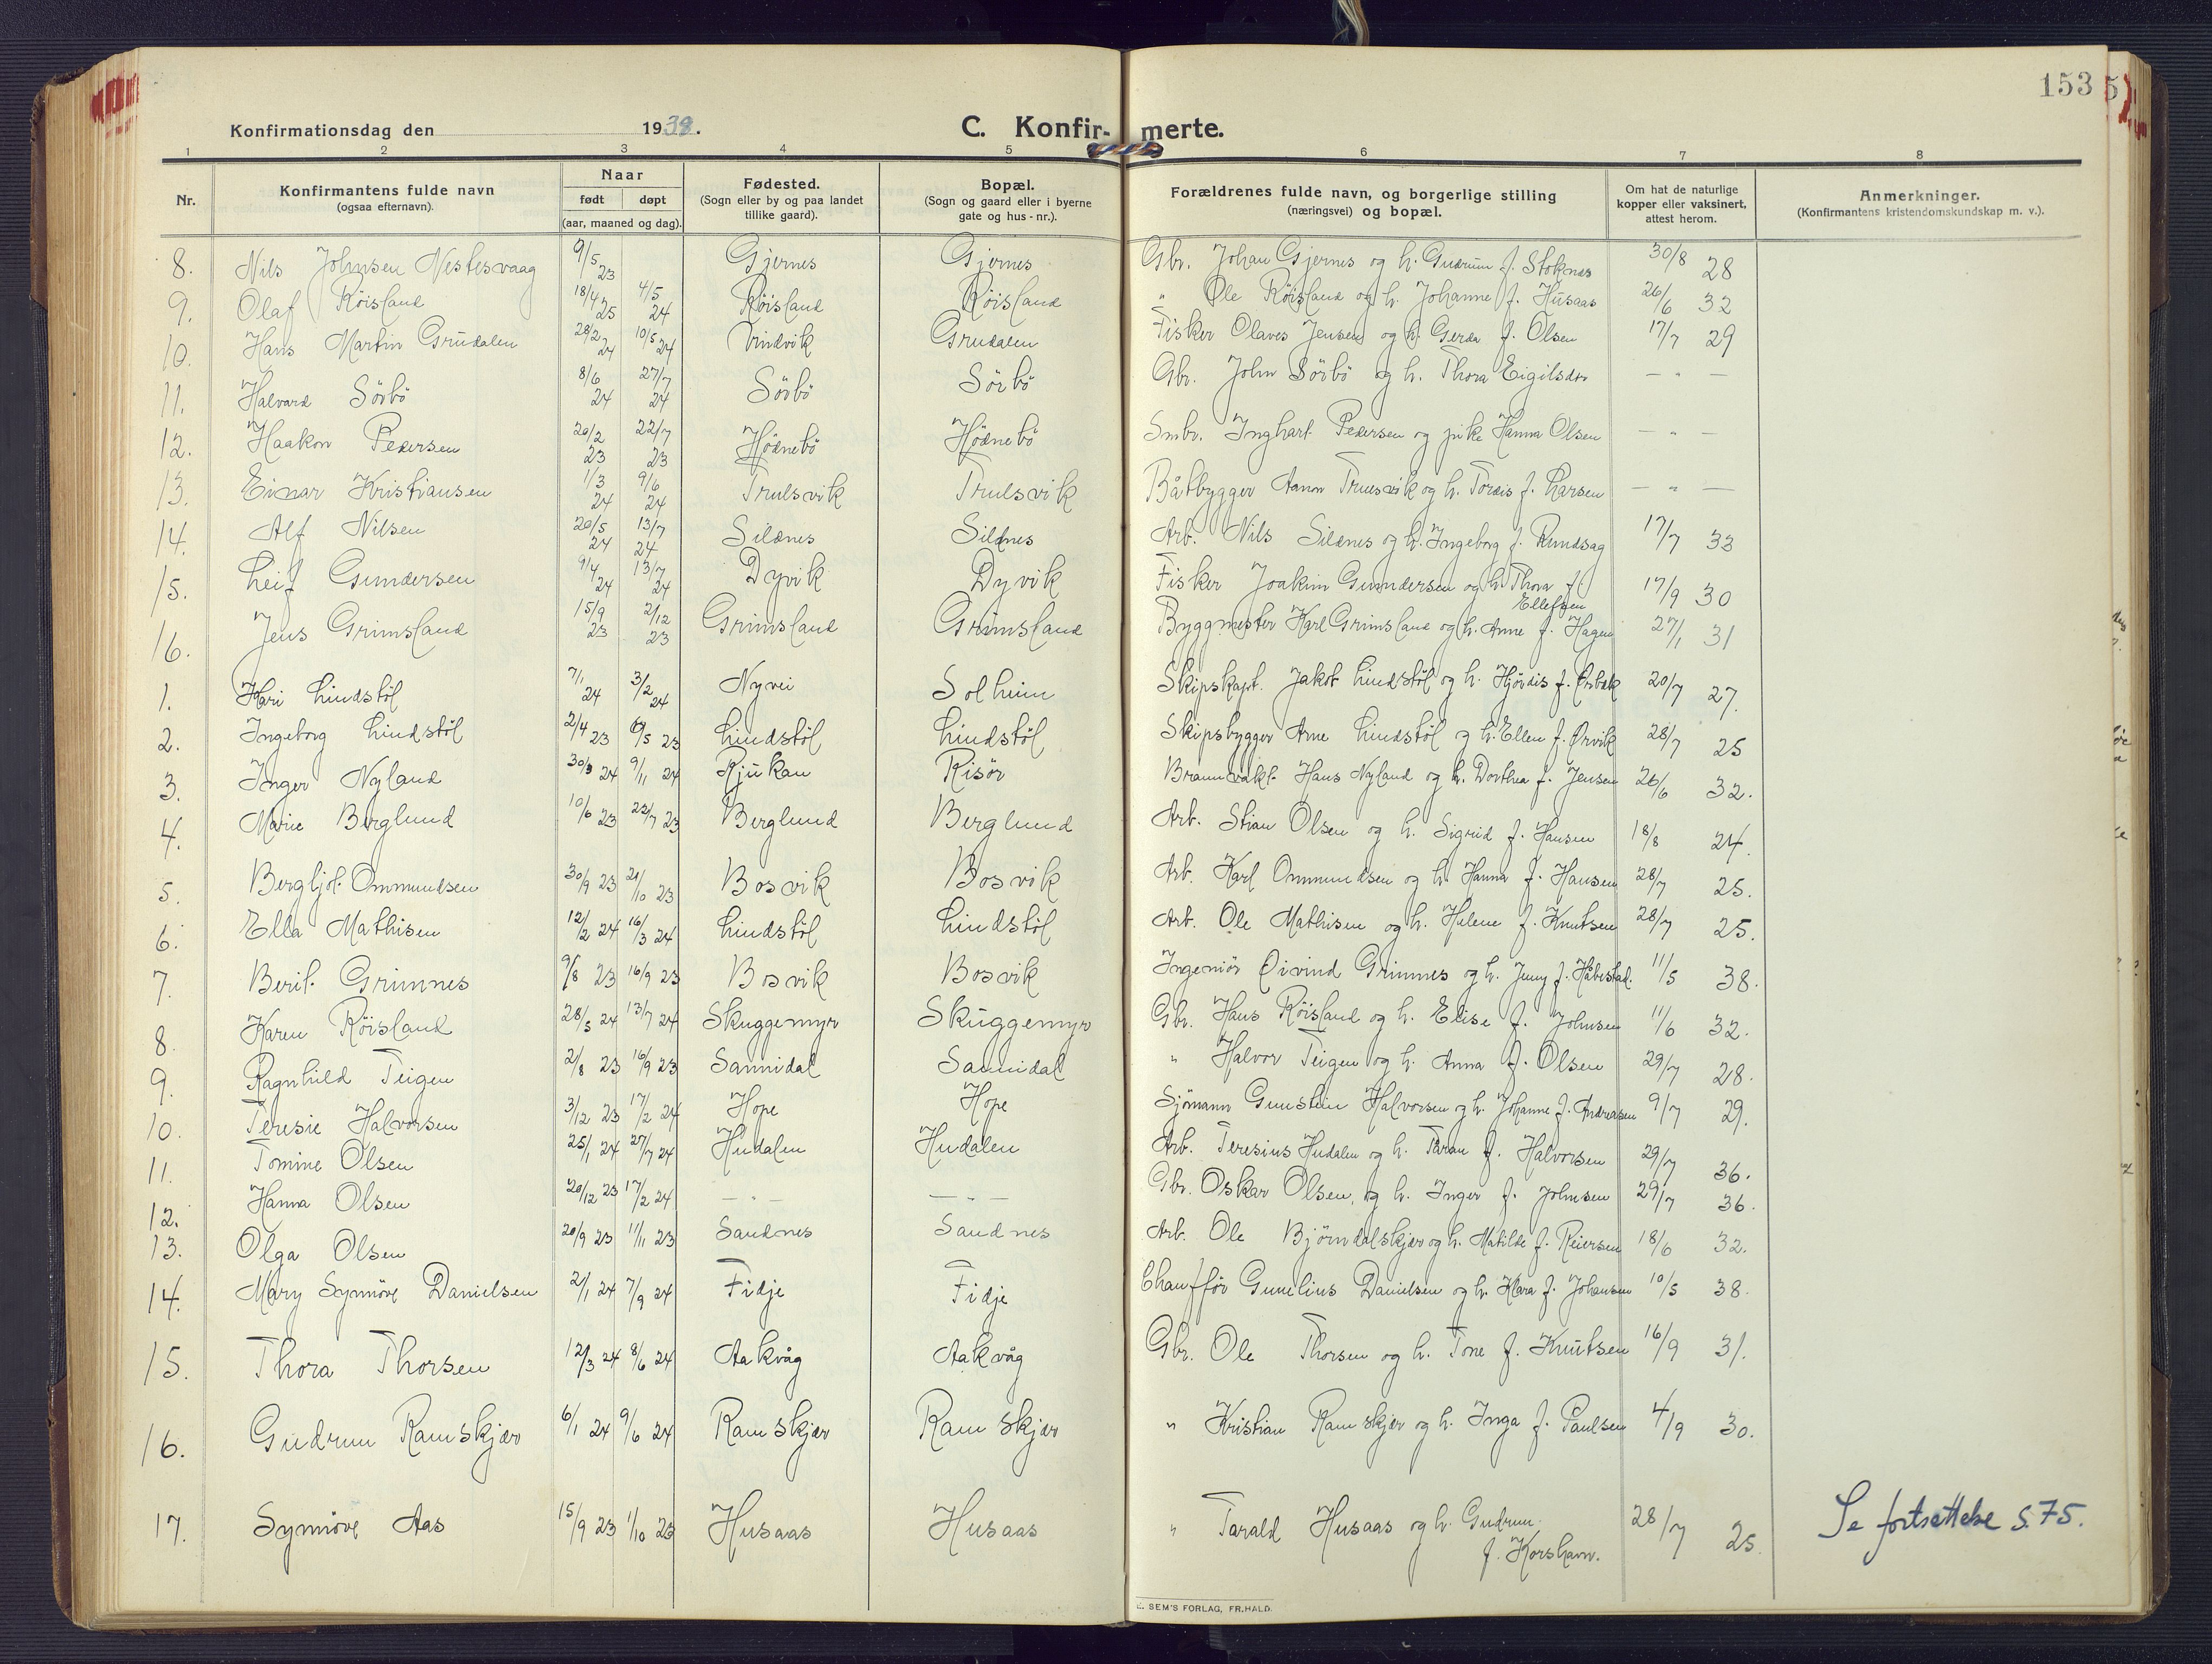 153
Konfirmationsdag den 1938. C. Konfirmerte.
1 2 3 4 5 6 7 8
Nr. Konfirmantens fulde navn (ogsaa efternavn). Naar født døpt (aar, maaned og dag). Fødested. (Sogn eller by og paa landet tillike gaard). Bopæl. (Sogn og gaard eller i byerne gate og hus-nr.). Forældrenes fulde navn, og borgerlige stilling (næringsvei) og bopæl. Om hat de naturlige kopper eller vaksinert, attest herom. Anmerkninger. (Konfirmantens kristendomskundskap m. v.).
8. Nils Johnsen Nestesvaag 9/5 23 Gjernes Gjernes Gbr. Johan Gjernes og h. Gudrun f. Stoknes 30/8 28
9. Olaf Röisland 18/4 25 4/5 24 Röisland Röisland " Ole Röisland og h. Johanne f. Husaas 26/6 32
10. Hans Martin Grudalen 28/2 24 10/5 24 Vindvik Grudalen Fisker Olaves Jensen og h. Gerda f. Olsen 17/7 29
11. Halvard Sörbö 8/6 24 27/7 24 Sörbö Sörbö Gbr. John Sörbö og h. Thora Eigilsdtr — " —
12. Haakon Pedersen 20/2 23 22/7 23 Hödnebö Hödnebö Smbr. Inghart Pedersen og pike Hanna Olsen — " —
13. Einar Kristiansen 1/3 24 9/6 24 Trulsvik Trulsvik Båtbygger Aanon Trulsvik og h. Tordis f. Larsen — " —
14. Alf Nilsen 20/5 24 13/7 24 Sildnes Sildnes Arb. Nils Sildnes og h. Ingeborg f. Rundsag 17/7 33
15. Leif Gundersen 9/4 24 13/7 24 Dyvik Dyvik Fisker Joakim Gundersen og h. Thora f. Ellefsen 17/9 30
16. Jens Grimsland 15/9 23 2/12 23 Grimsland Grimsland Byggmester Karl Grimsland og h. Anne f. Hagen 27/1 31
1. Kari Lindstöl 7/1 24 3/2 24 Nyvei Solheim Skipskapt. Jakob Lindstöl og h. Hjördis f. Örbæk 20/7 27.
2. Ingeborg Lindstöl 2/4 23 6/5 23 Lindstöl Lindstöl Skipsbygger Arne Lindstöl og h. Ellen f. Ørvik 28/7 25
3. Inger Nyland 30/3 24 9/11 24 Rjukan Risör Brannvakt. Hans Nyland og h. Dorthea f. Jensen 26/6 32.
4. Marie Berglund 10/6 23 22/7 23 Berglund Berglund Arb. Stian Olsen og h. Sigrid f. Hansen 18/8 24.
5. Bergljot Ommundsen 30/9 23 21/10 23 Bosvik Bosvik Arb. Karl Ommundsen og h. Hanna f. Hansen 28/7 25.
6. Ella Mathisen 12/2 24 16/3 24 Lindstöl Lindstöl Arb. Ole Mathisen og h. Helene f. Knutsen 28/7 25.
7. Berit Grimnes 9/8 23 16/9 23 Bosvik Bosvik Ingeniör Öivind Grimnes og h. Jenny f. Håbestad. 11/5 38.
8. Karen Röisland 28/5 24 13/7 24 Skuggemyr Skuggemyr Gbr. Hans Röisland og h. Elise f. Johnsen 11/6 32.
9. Ragnhild Teigen 2/8 23 16/9 23 Sannidal Sannidal " Halvor Teigen og h. Anna f. Olsen 29/7 28.
10. Teresie Halvorsen 3/12 23 17/2 24 Hope Hope Sjömann Gunstein Halvorsen og h. Johanne f. Andreasen 9/7 29.
11. Tomine Olsen 25/1 24 27/7 24 Hudalen Hudalen Arb. Teresius Hudalen og h. Taran f. Halvorsen 29/7 36.
12. Hanna Olsen 20/12 23 17/2 24 — " — — " — Gbr. Oskar Olsen, og h. Inger f. Johnsen 29/7 36.
13. Olga Olsen 20/9 23 11/11 23 Sandnes Sandnes Arb. Ole Björndalskjær og h. Matilde f. Reiersen 18/6 32.
14. Mary Synnöve Danielsen 2/1 24 7/9 24 Fidje Fidje Chaufför Gunelius Danielsen og h. Klara f. Johansen 10/5 38.
15. Thora Thorsen 12/3 24 8/6 24 Aakvåg Aakvåg Gbr. Ole Thorsen og h. Tone f. Knutsen 16/9 31.
16. Gudrun Ramskjær 6/1 24 9/6 24 Ramskjær Ramskjær " Kristian Ramskjær og h. Inga f. Paulsen 4/9 30.
17. Synnöve Aas 15/9 23 1/10 23 Husaas Husaas " Tarald Husaas og h. Gudrun. f. Korshavn. 28/7 25. Se fortsettelse S. 75.
E. SEM'S FORLAG, FR.HALD.